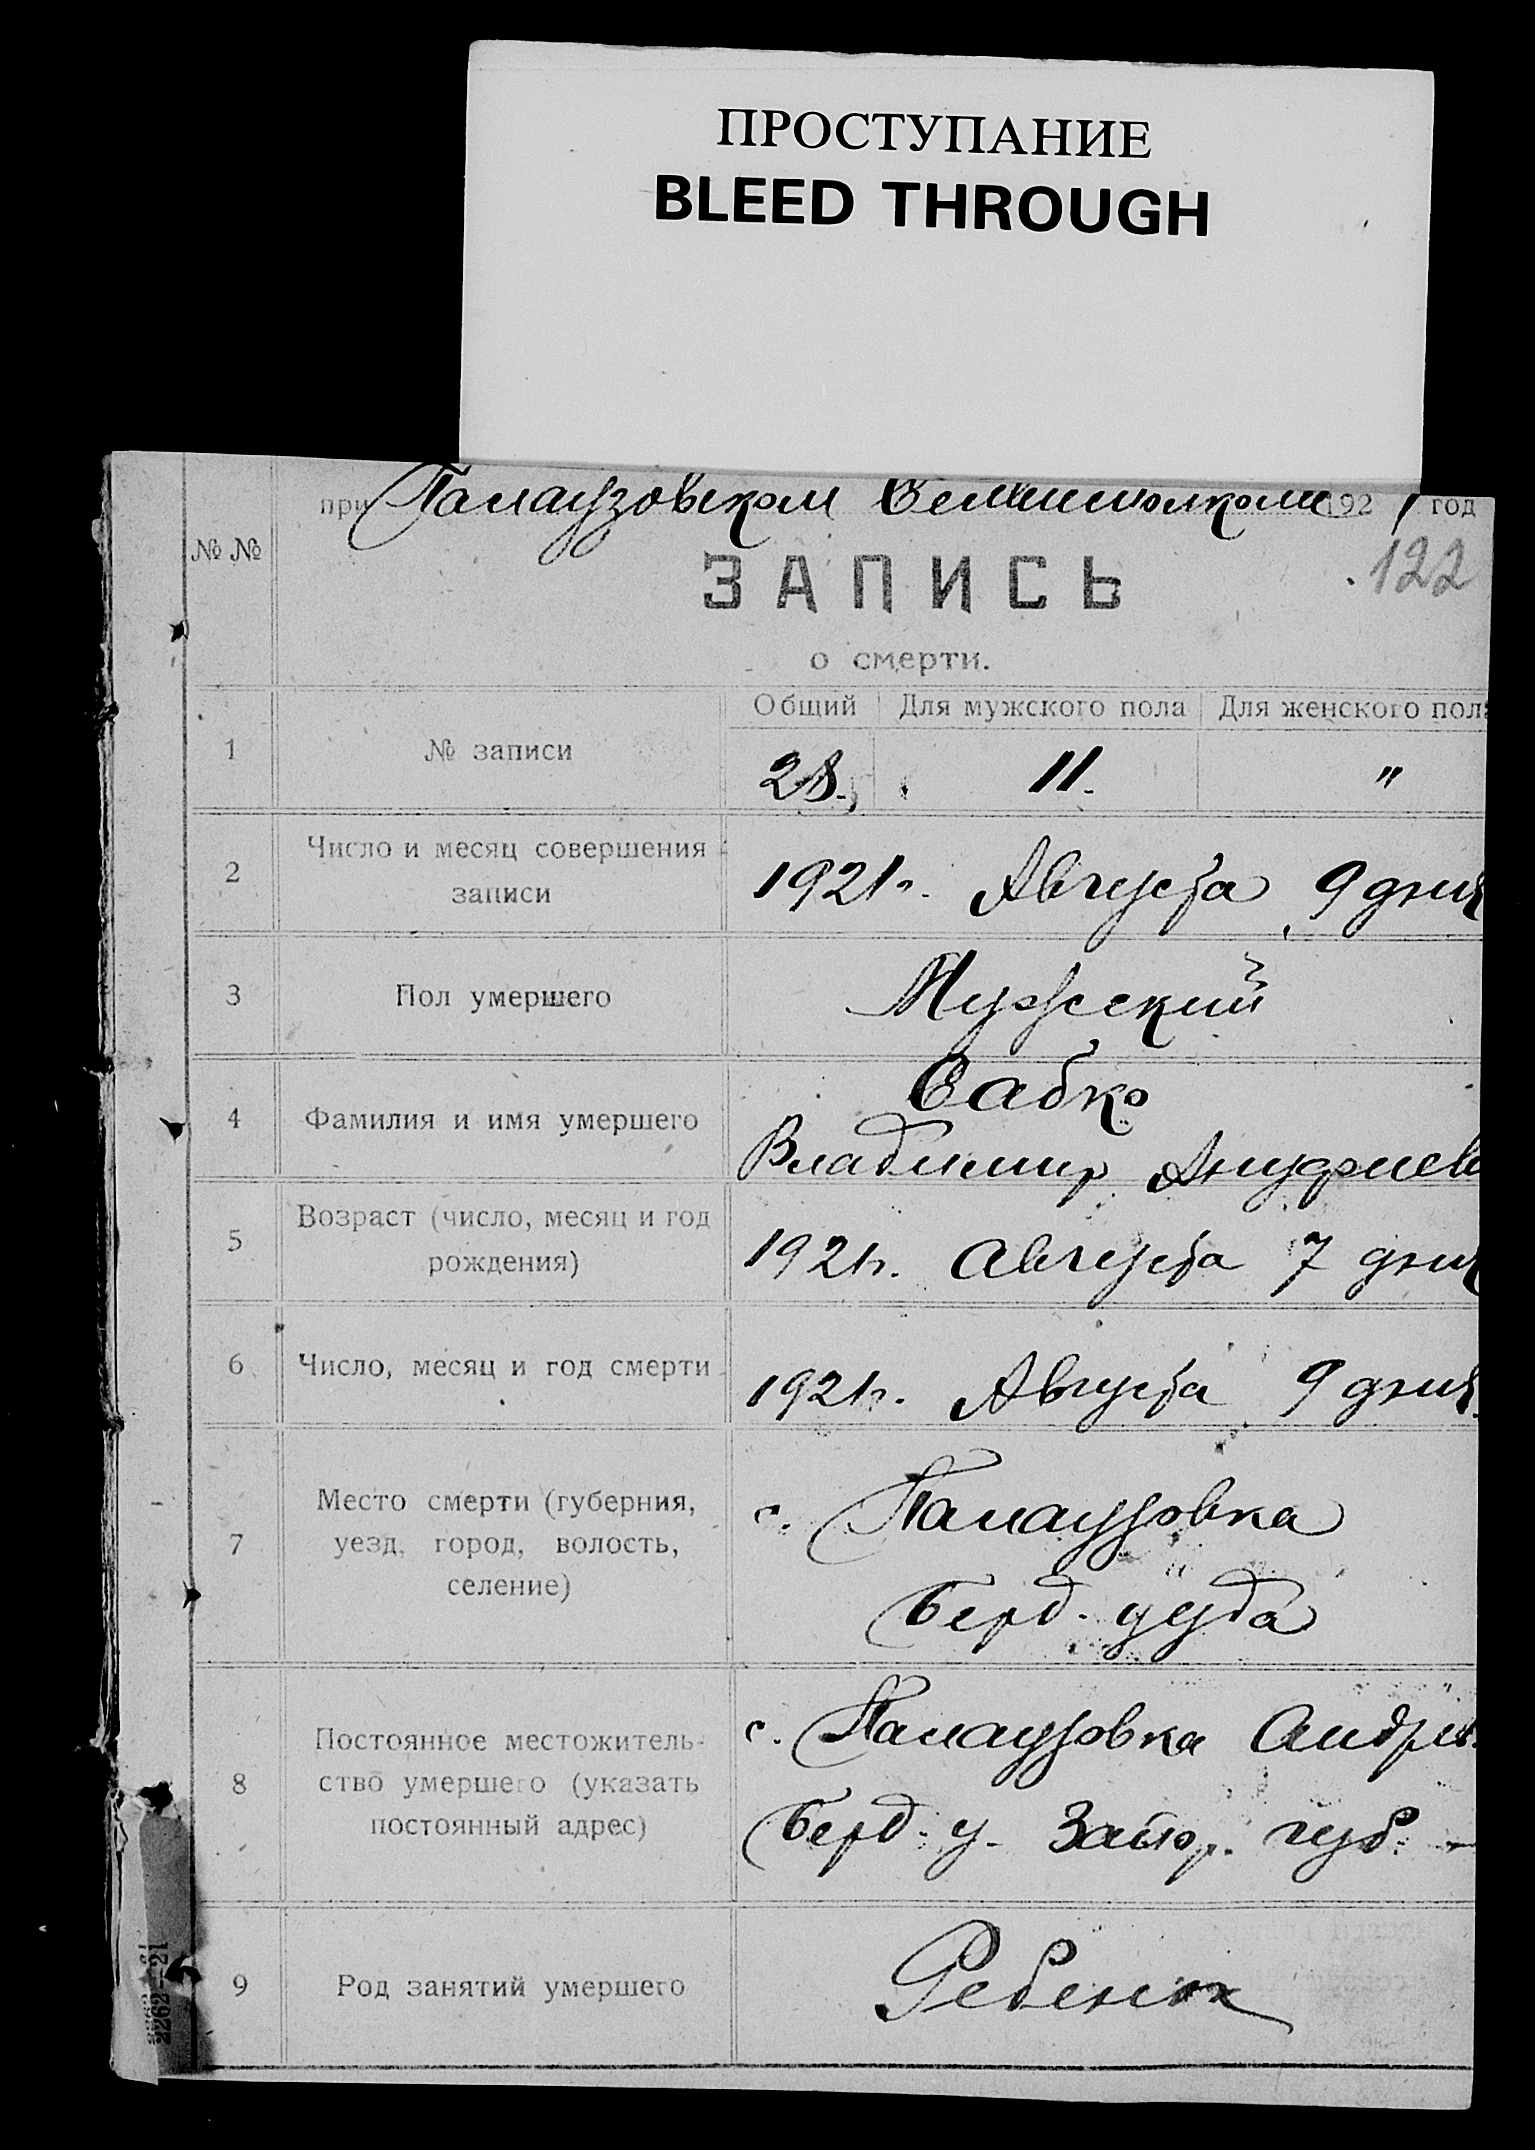 ПРОСТУПАНИЕ
BLEED THROUGH
при 192 1 год
№ №
122
ЗАПИСЬ
о смерти.
Общий Для мужского пола Для женского пола
1 № записи 28. 11. "
2 Число и месяц совершения
записи
1921 г. Августа 9 дня
3 Пол умершего Мужский
4 Фамилия и имя умершего
Сабко
Владимир Ануфриев
5 Возраст (число, месяц и год
рождения)
1921 г. Августа 7 дня
6 Число, месяц и год смерти 1921 г. Августа 9 дня
7 Место смерти (губерния,
уезд, город, волость,
селение)
с. Палаузовка
Берд. уезда
8 Постоянное местожитель-
ство умершего (указать
постоянный адрес)
с. Палаузовка Андрев.
Берд. у. Запор. губ.
9 Род занятий умершего Ребенок
2262-21